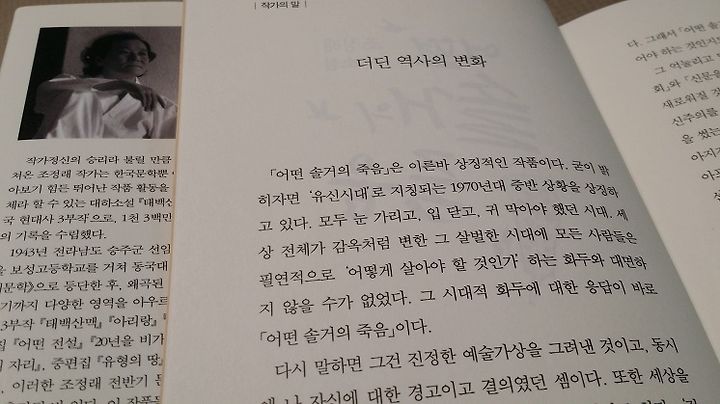 작가정신의 승리라 불릴 만큼
처온 조정래 작가는 한국문학뿐
아보기 힘든 뛰어난 작품 활동을
체라 할 수 있는 대하소설 『태백산
국 현대사 3부작'으로, 1천 3백만
의 기록을 수립했다.
1943년 전라남도 승주군 선암
을 보성고등학교를 거쳐 동국대
문학》으로 등단한 후, 왜곡된
기까지 다양한 영역을 아우르
3부작 『태백산맥』 『아리랑』
집 『어떤 전설』 『20년을 비가
자리』, 중편집 『유형의 땅』
. 이러한 조정래 전반기 문
| 작가의 말 |
더딘 역사의 변화
「어떤 솔거의 죽음」은 이른바 상징적인 작품이다. 굳이 밝
히자면 '유신시대'로 지칭되는 1970년대 중반 상황을 상징하
고 있다. 모두 눈 가리고, 입 닫고, 귀 막아야 했던 시대. 세
상 전체가 감옥처럼 변한 그 살벌한 시대에 모든 사람들은
필연적으로 '어떻게 살아야 할 것인가' 하는 화두와 대면하
지 않을 수가 없었다. 그 시대적 화두에 대한 응답이 바로
「어떤 솔거의 죽음」이다.
다시 말하면 그건 진정한 예술가상을 그려낸 것이고, 동시
에 나 자신에 대한 경고이고 결의였던 셈이다. 또한 세상을
다. 그래서 「어떤
어야 하는 것인지
그 억눌리고
회」와 「신문을
새로워질 것
신주의를
을 썼는
아지
프